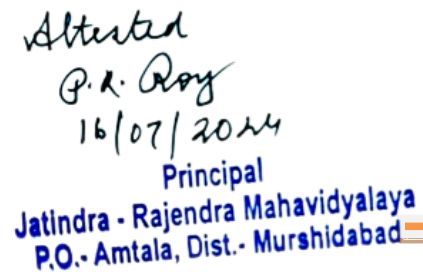 Attested
P.R. Roy
16/07/2024
Principal
Jatindra - Rajendra Mahavidyalaya
P.O.- Amtala, Dist.- Murshidabad